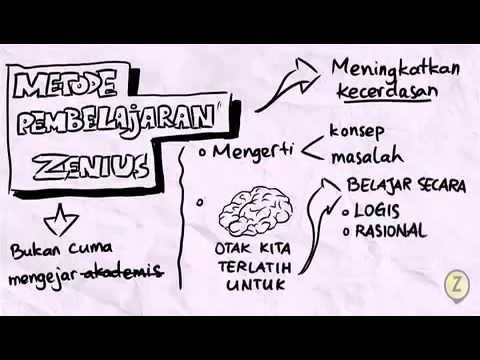 METODE
PEMBELAJARAN
ZENIUS
Bukan cuma
mengejar akademis
Meningkatkan
kecerdasan
Mengerti
konsep
masalah
OTAK KITA
TERLATIH
UNTUK
BELAJAR SECARA
LOGIS
RASIONAL
Z